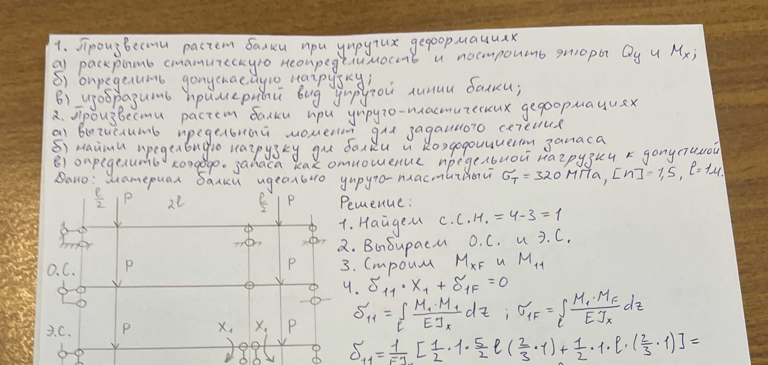 1. Произвести расчет балки при упругих деформациях
а) раскрыть статическую неопределимость и построить эпюры Qy и Mx;
б) определить допускаемую нагрузку;
в) изобразить примерный вид упругой линии балки;
2. Произвести расчет балки при упруго-пластических деформациях
а) вычислить предельный момент для заданного сечения
б) найти предельную нагрузку для балки и коэффициент запаса
в) определить коэфф. запаса как отношение предельной нагрузки к допустимой
Дано: материал балки идеально упруго-пластичный σт = 320 МПа, [n]=1,5, l=1м.
l/2 P 2l l/2 P
Решение:
1. Найдем С.С.Н. = 4-3 = 1
2. Выбираем О.С. и Э.С.
О.С. P P
3. Строим MxF и M11
4. δ11 · X1 + δ1F = 0
δ11 = ∫l M1·M1/EJx dz ; σ1F = ∫l M1·MF/EJx dz
Э.С. P X1 X1 P
δ11 = 1/EJx [1/2 · 1 · 5/2 l (2/3 · 1) + 1/2 · 1 · l · (2/3 · 1)] =